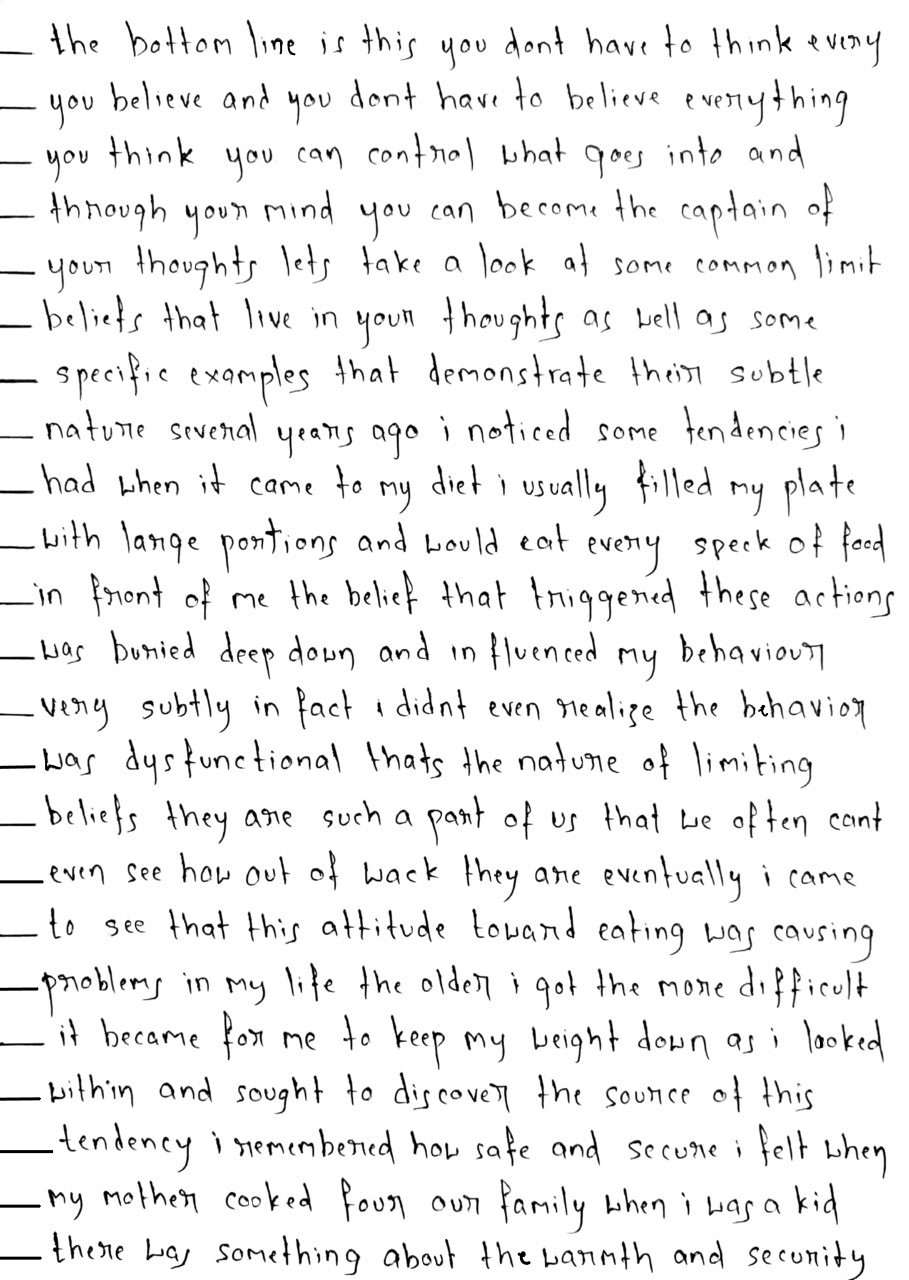 the bottom line is this you dont have to think every
you believe and you dont have to believe everything
you think you can control what goes into and
through your mind you can become the captain of
your thoughts lets take a look at some common limit
beliefs that live in your thoughts as well as some
specific examples that demonstrate their subtle
nature several years ago i noticed some tendencies i
had when it came to my diet i usually filled my plate
with large portions and would eat every speck of food
in front of me the belief that triggered these actions
was buried deep down and influenced my behaviour
very subtly in fact i didnt even realize the behavior
was dysfunctional thats the nature of limiting
beliefs they are such a part of us that we often cant
even see how out of wack they are eventually i came
to see that this attitude toward eating was causing
problems in my life the older i got the more difficult
it became for me to keep my weight down as i looked
within and sought to discover the source of this
tendency i remembered how safe and secure i felt when
my mother cooked four our family when i was a kid
there was something about the warmth and security